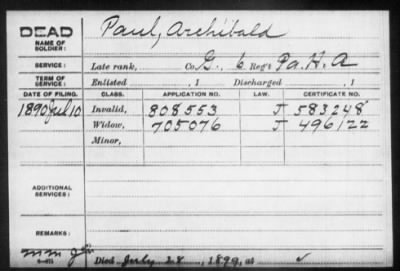 DEAD Paul, Archibald
NAME OF
SOLDIER:
SERVICE: Late rank, Co. G, 6 Reg't Pa. H. A
TERM OF
SERVICE: Enlisted , 1 Discharged , 1
DATE OF FILING. CLASS. APPLICATION NO. LAW. CERTIFICATE NO.
1890 Jul 10 Invalid, 808553 J 583248
Widow, 705076 J 496122
Minor,
ADDITIONAL
SERVICES:
REMARKS:
Died July 28, 1899, at